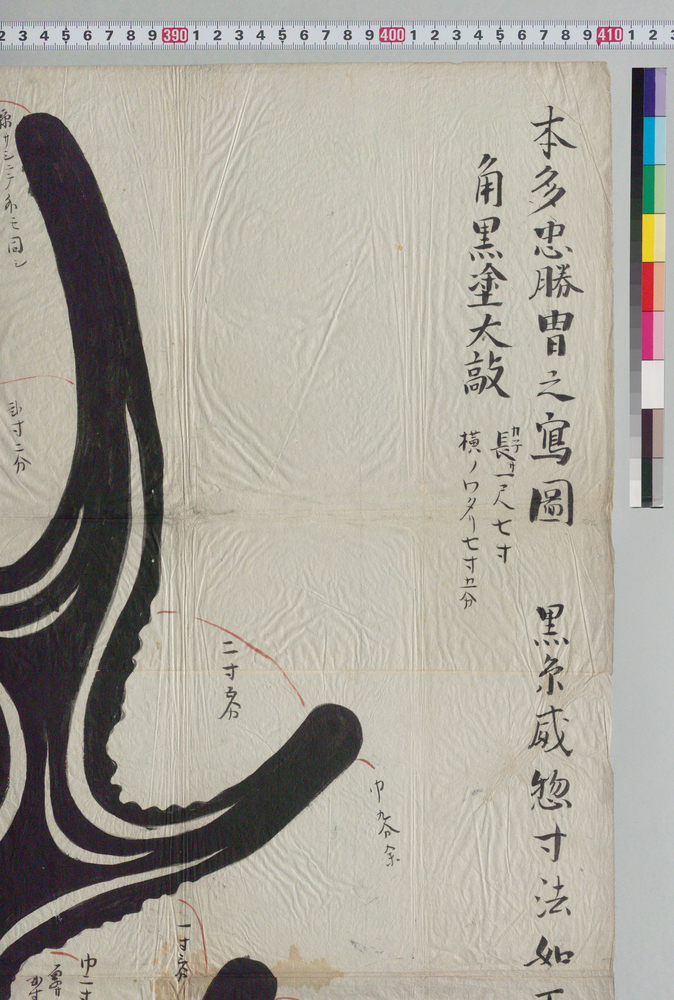 2 3 4 5 6 7 8 9 390 1 2 3 4 5 6 7 8 9 400 1 2 3 4 5 6 7 8 9 410 1 2 3
本多忠勝冑之寫圖 黒糸威惣寸法如
角黒塗太敲
カネ
長サ一尺七寸
横ノワタリ七寸五分
二寸五分
巾九分余
一寸五分
巾一寸
弐寸二分
サシニテ
同シ